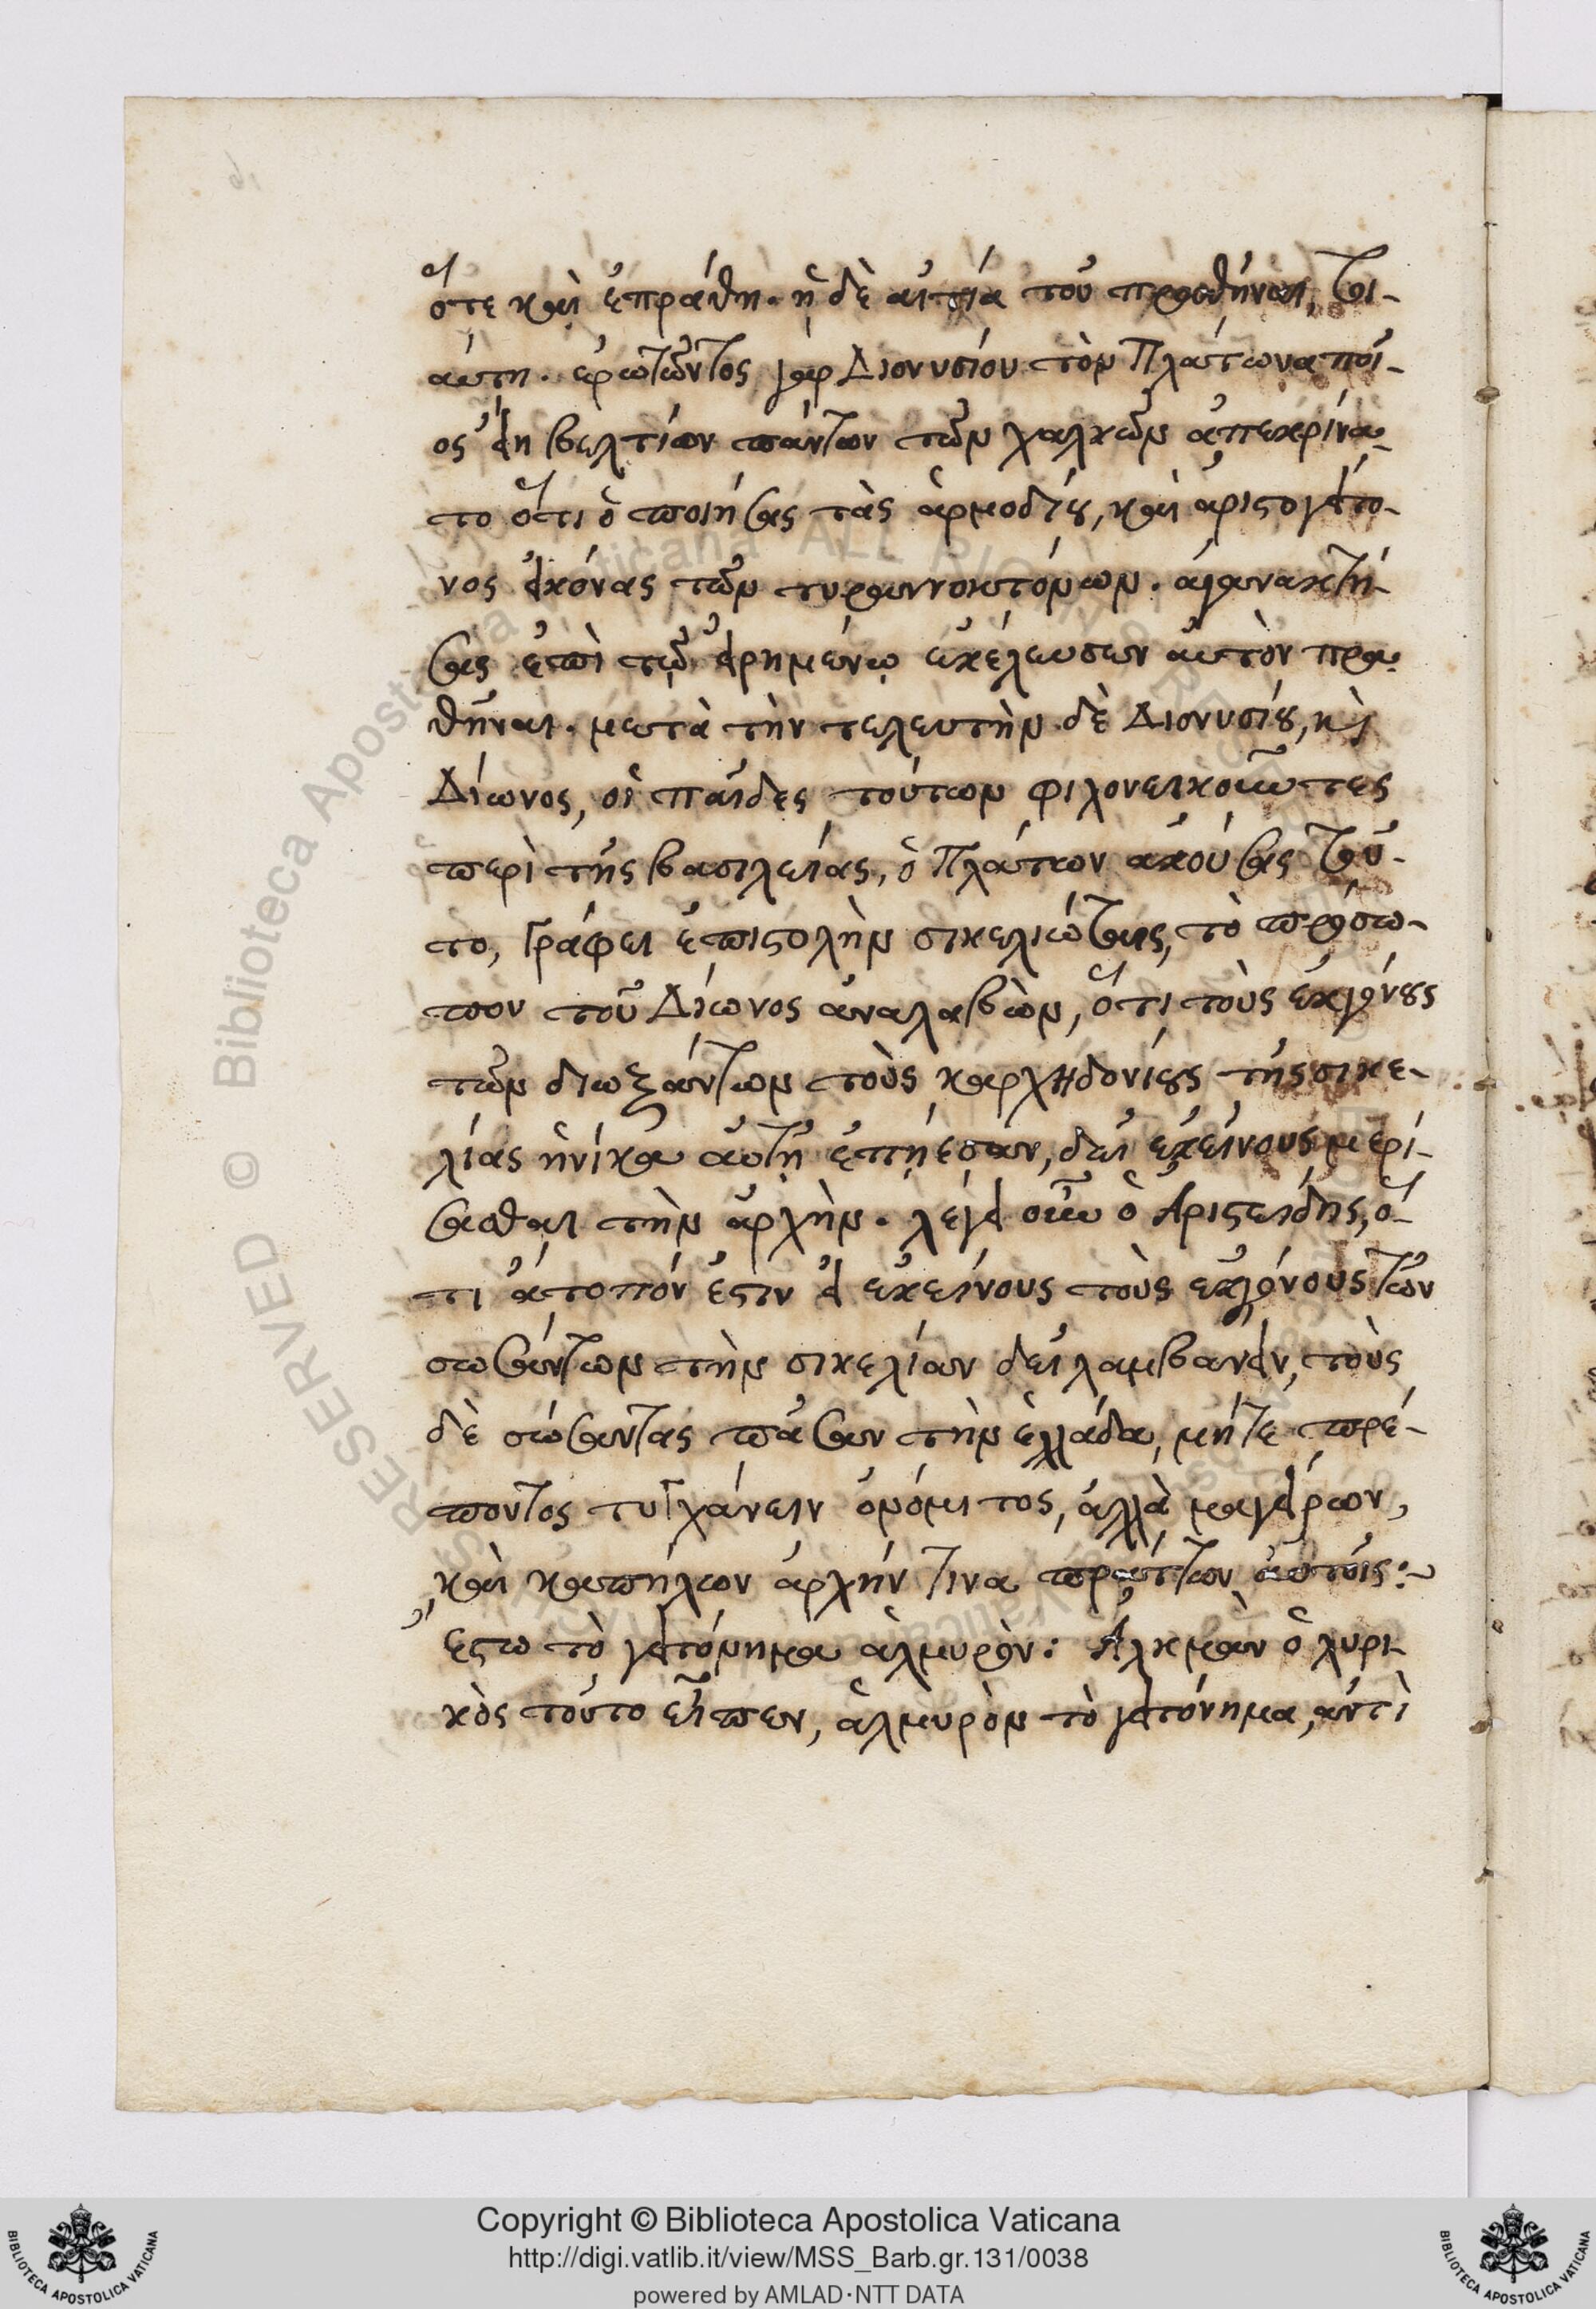 ὅτε καὶ ἐπράθη. ἡ δὲ αἰτία τοῦ πραθῆναι, τοι-
αύτη. ἐρωτῶντος γὰρ Διονυσίου τὸν Πλάτωνα ποῖ-
ος εἴη βελτίων πάντων τῶν χαλκῶν ἀπεκρίνα-
το ὅτι ὁ ποιήσας τὰς ἁρμοδίου, καὶ ἀριστογείτο-
νος εἰκόνας τῶν τυραννοκτόνων. ἀγανακτή-
σας ἐπὶ τῷ εἰρημένῳ ἐκέλευσεν αὐτὸν πρα-
θῆναι. μετὰ τὴν τελευτὴν δὲ Διονυσίου, καὶ
Δίωνος, οἱ παῖδες τούτων φιλονεικοῦντες
περὶ τῆς βασιλείας, ὁ Πλάτων ἀκούσας τοῦ-
το, γράφει ἐπιστολὴν σικελιώταις, τὸ πρόσω-
πον τοῦ Δίωνος ἀναλαβὼν, ὅτι τοὺς ἐκγόνους
τῶν διωξάντων τοὺς καρχηδονίους τῆς σικε-
λίας ἡνίκα αὐτῇ ἐπῄεσαν, δεῖ ἐκείνους μερί-
σασθαι τὴν ἀρχὴν. λέγει οὖν ὁ Ἀριστείδης, ὅ-
τι ἄτοπόν ἐστιν εἰ ἐκείνους τοὺς ἐκγόνους τῶν
σωσάντων τὴν σικελίαν δεῖ λαμβανειν, τοὺς
δὲ σώσαντας πᾶσαν τὴν ἑλλάδα, μήτε πρέ-
ποντος τυγχάνειν ὀνόματος, ἀλλὰ μαγείρων,
καὶ καπήλων ἀρχήν τινα πράττων αὐτοῖς:
ἔστω τὸ γειτόνημα ἁλμυρὸν: Ἀλκμὰν ὁ λυρι-
κὸς τοῦτο εἶπεν, ἁλμυρὸν τὸ γειτόνημα, ἀντὶ
Copyright © Biblioteca Apostolica Vaticana
http://digi.vatlib.it/view/MSS_Barb.gr.131/0038
powered by AMLAD·NTT DATA